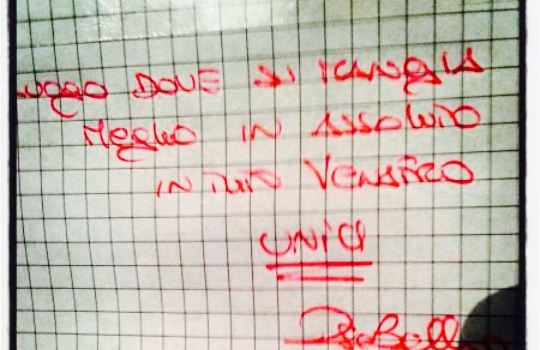 LUOGO DOVE SI MANGIA
MEGLIO IN ASSOLUTO
IN TUTTO
UNICI